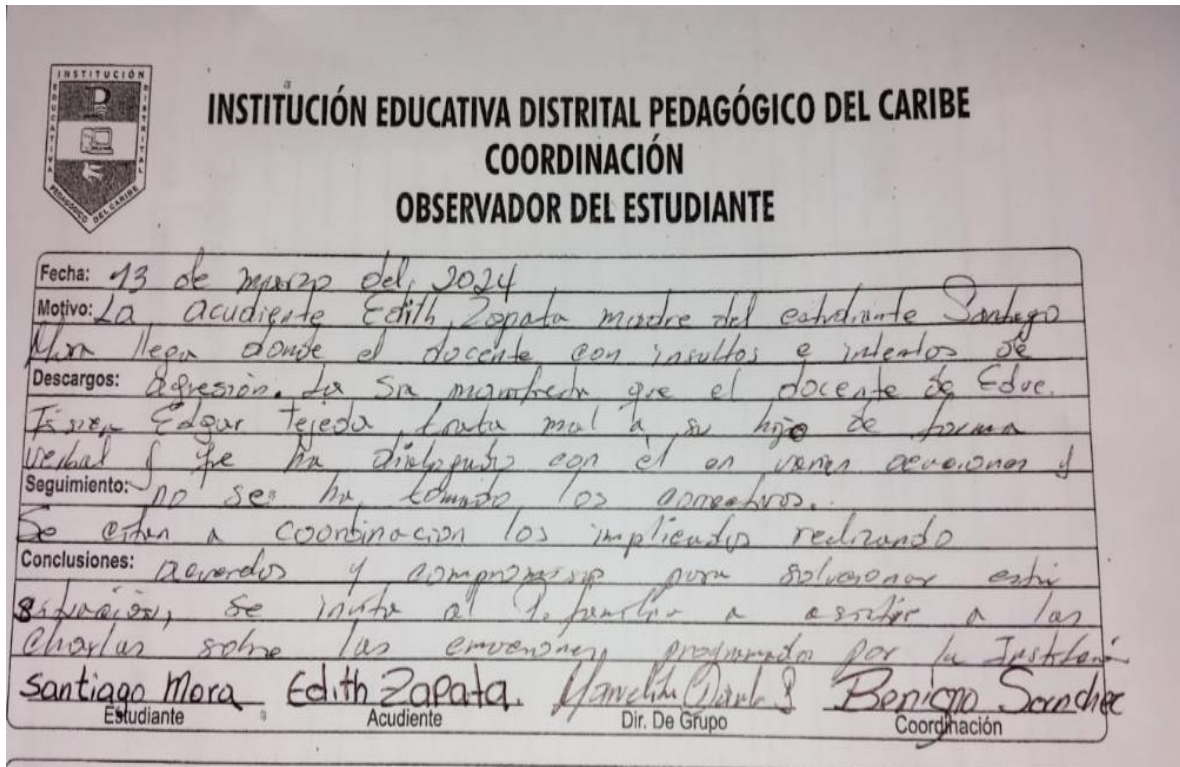 INSTITUCIÓN EDUCATIVA DISTRITAL PEDAGÓGICO DEL CARIBE
INSTITUCIÓN EDUCATIVA DISTRITAL PEDAGÓGICO DEL CARIBE
COORDINACIÓN
OBSERVADOR DEL ESTUDIANTE
Fecha: 13 de marzo del, 2024
Motivo: La acudiente Edith Zapata madre del estudiante Santiago
Mora llega donde el docente con insultos e intentos de
Descargos: agresión. La Sra manifiesta que el docente de Educ.
Física Edgar Tejeda trata mal a su hijo de forma
verbal y que ha dialogado con el en varias ocasiones y
Seguimiento: no se ha tomado los correctivos.
Se citan a coordinacion los implicados realizando
Conclusiones: acuerdos y compromisos para solucionar esta
situación, se invita al P. familia a asistir a las
charlas sobre las emociones programados por la Institución
Santiago Mora Edith Zapata. Benigno Sanchez
Estudiante Acudiente Dir. De Grupo Coordinación